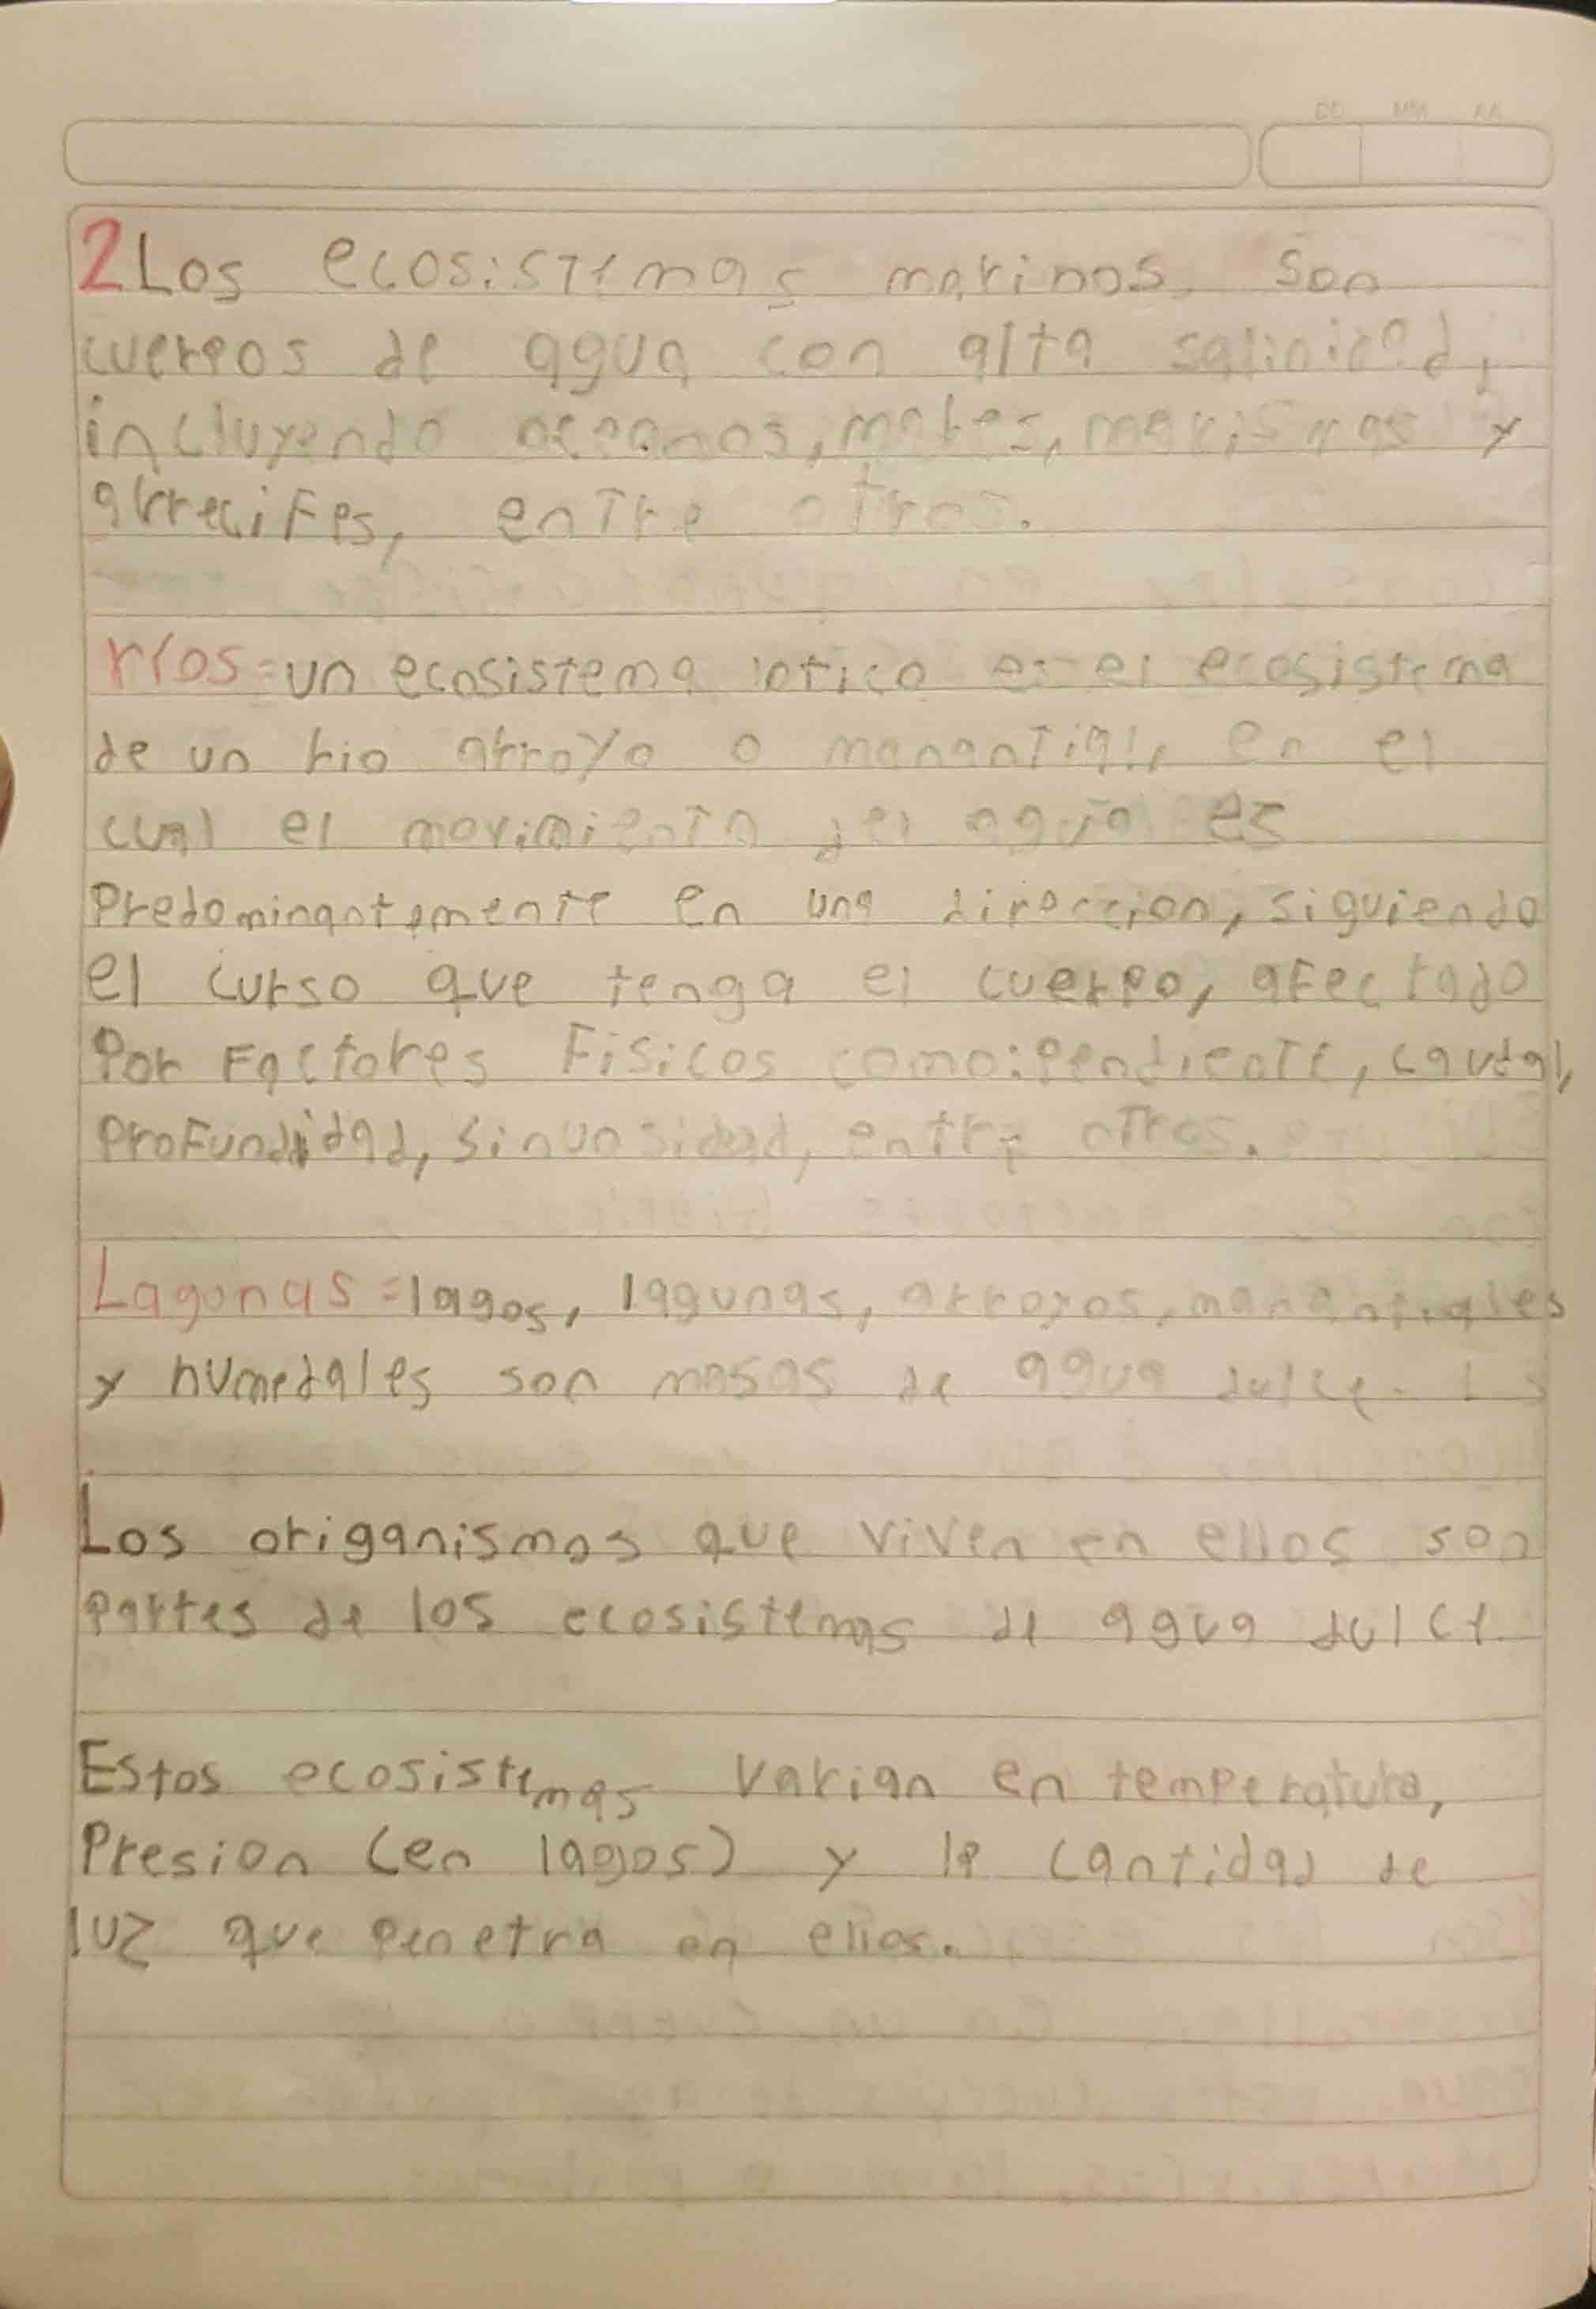 DD MM AA
2 Los ecosistemas marinos son
cuerpos de agua con alta salinidad,
incluyendo oceanos, mares, marismas y
arrecifes, entre otros.
ríos = un ecosistema lotico es el ecosistema
de un rio arroyo o manantial, en el
cual el movimiento del agua es
Predominantemente en una direccion, siguiendo
el curso que tenga el cuerpo, afectado
Por Factores Fisicos como: pendiente, caudal,
profundidad, sinuosidad, entre otros.
Lagonas = lagos, lagunas, arroyos, manantiales
y humedales son masas de agua dulce.
Los origanismos que viven en ellos son
partes de los ecosistemas de agua dulce
Estos ecosistemas varian en temperatura,
Presion (en lagos) y la cantidad de
luz que penetra en ellos.